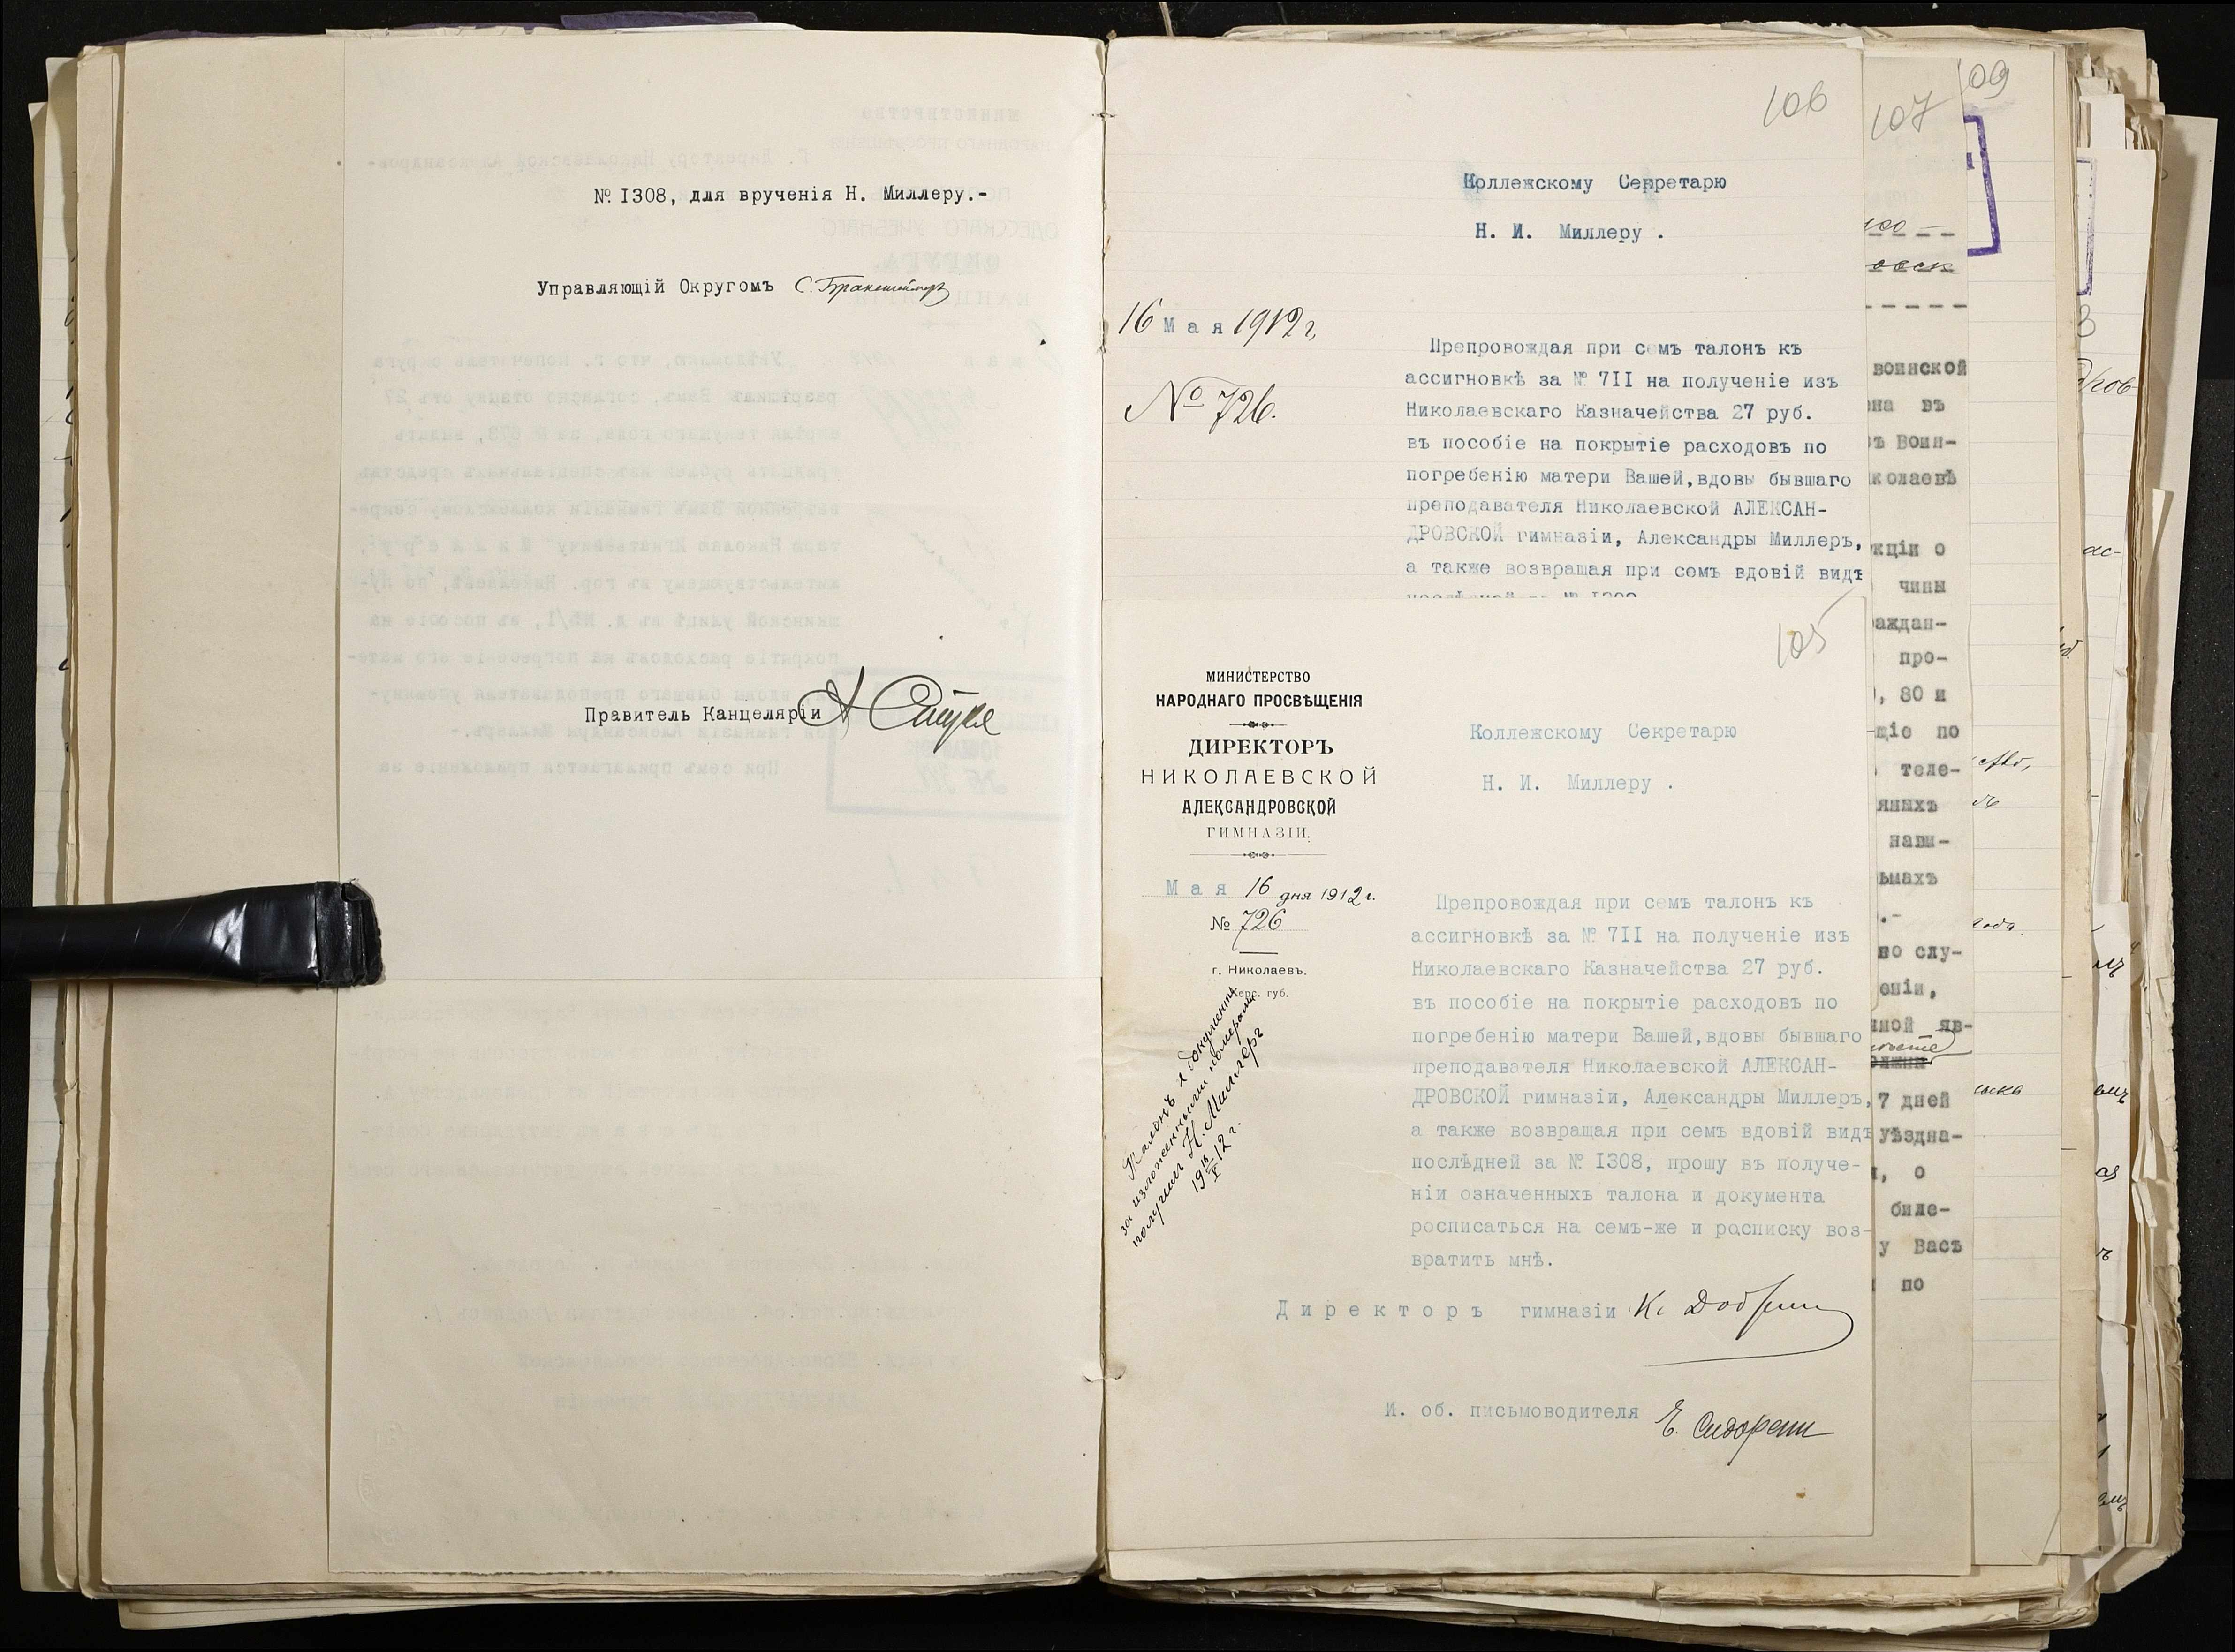 № I308, для врученія Н. Миллеру.-
Управляющій Округомъ
Правитель Канцеляріи
106
107
09
Коллежскому Секретарю
Н. И. Миллеру .
16 Мая 1912 г,
№ 726.
Препровождая при семъ талонъ къ
ассигновкѣ за № 7II на полученіе изъ
Николаевскаго Казначейства 27 руб.
въ пособіе на покрытіе расходовъ по
погребенію матери Вашей,вдовы бывшаго
преподавателя Николаевской АЛЕКСАН-
ДРОВСКОЙ гимназіи, Александры Миллеръ,
а также возвращая при семъ вдовій видъ
105
МИНИСТЕРСТВО
НАРОДНАГО ПРОСВѢЩЕНІЯ
ДИРЕКТОРЪ
НИКОЛАЕВСКОЙ
АЛЕКСАНДРОВСКОЙ
ГИМНАЗІИ.
Мая 16 дня 1912 г.
№ 726
г. Николаевъ.
Херс. губ.
Талонъ и документъ
за изложенными номерами
получилъ Н. Миллеръ
19 16/V 12 г.
Коллежскому Секретарю
Н. И. Миллеру .
Препровождая при семъ талонъ къ
ассигновкѣ за № 7II на полученіе изъ
Николаевскаго Казначейства 27 руб.
въ пособіе на покрытіе расходовъ по
погребенію матери Вашей,вдовы бывшаго
преподавателя Николаевской АЛЕКСАН-
ДРОВСКОЙ гимназіи, Александры Миллеръ,
а также возвращая при семъ вдовій видъ
послѣдней за № I308, прошу въ получе-
ніи означенныхъ талона и документа
росписаться на семъ-же и росписку воз-
вратить мнѣ.
Директоръ гимназіи
И. об. письмоводителя Е. Сидорен
воинской
на въ
ъ Воин-
колаевѣ
кціи о
чины
раждан-
про-
, 80 и
щіе по
теле-
янныхъ
наши-
ьмахъ
но слу-
еніи,
нной яв-
7 дней
уѣздна-
, о
биле-
у Васъ
по